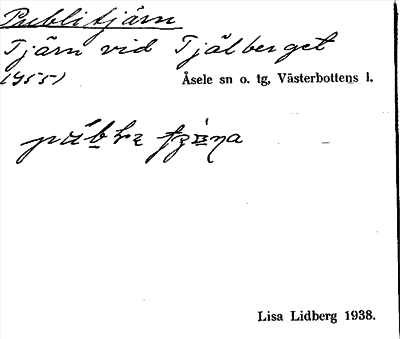 Publitjärn
Tjärn vid Tjälberget
(955) Åsele sn o. tg, Västerbottens l.
Lisa Lidberg 1938.